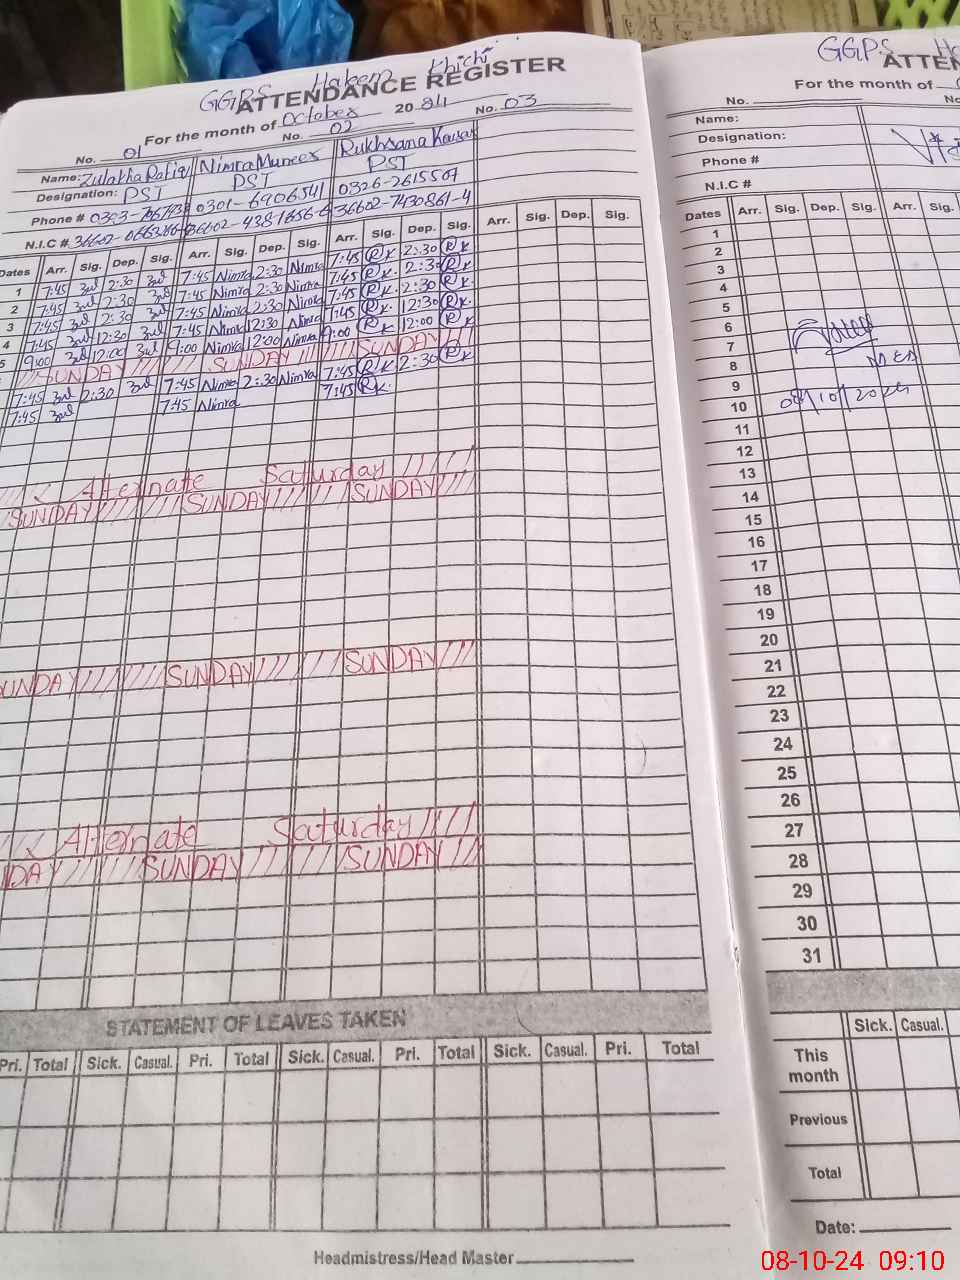 GGPS Hakeem Khichi
ATTENDANCE REGISTER
For the month of October 20
No. 01 No. 02 No. 03
Name: Zulakha Rafiq Nimra Muneer Rukhsana Kausar
Designation: PST PST PST
Phone # 0301-6906541 0326-2615507
N.I.C # 36602-7430861-4
Dates Arr. Sig. Dep. Sig. Arr. Sig. Dep. Sig. Arr. Sig. Dep. Sig. Arr. Sig. Dep. Sig.
1 7:45 2:30 7:45 Nimra 2:30 Nimra 7:45 RK 2:30 RK
2 7:45 2:30 7:45 Nimra 2:30 Nimra 7:45 RK 2:30 RK
3 7:45 2:30 7:45 Nimra 2:30 Nimra 7:45 RK 2:30 RK
4 7:45 12:30 7:45 Nimra 12:30 Nimra 7:45 RK 12:30 RK
5 9:00 12:00 9:00 Nimra 12:00 Nimra 9:00 RK 12:00 RK
SUNDAY SUNDAY SUNDAY
7:45 2:30 7:45 Nimra 2:30 Nimra 7:45 RK 2:30 RK
7:45 7:45 Nimra 7:45 RK
Alternate Saturday
SUNDAY SUNDAY SUNDAY
SUNDAY SUNDAY SUNDAY
Alternate Saturday
DAY SUNDAY SUNDAY
STATEMENT OF LEAVES TAKEN
Pri. Total Sick. Casual. Pri. Total Sick. Casual. Pri. Total Sick. Casual. Pri. Total
Headmistress/Head Master
GGPS
ATTEN
For the month of
No.
Name:
Designation:
Phone #
N.I.C #
Dates Arr. Sig. Dep. Sig. Arr. Sig.
1
2
3
4
5
6
7
8
9
10 08/10/2024
11
12
13
14
15
16
17
18
19
20
21
22
23
24
25
26
27
28
29
30
31
Sick. Casual.
This month
Previous
Total
Date:
08-10-24 09:10